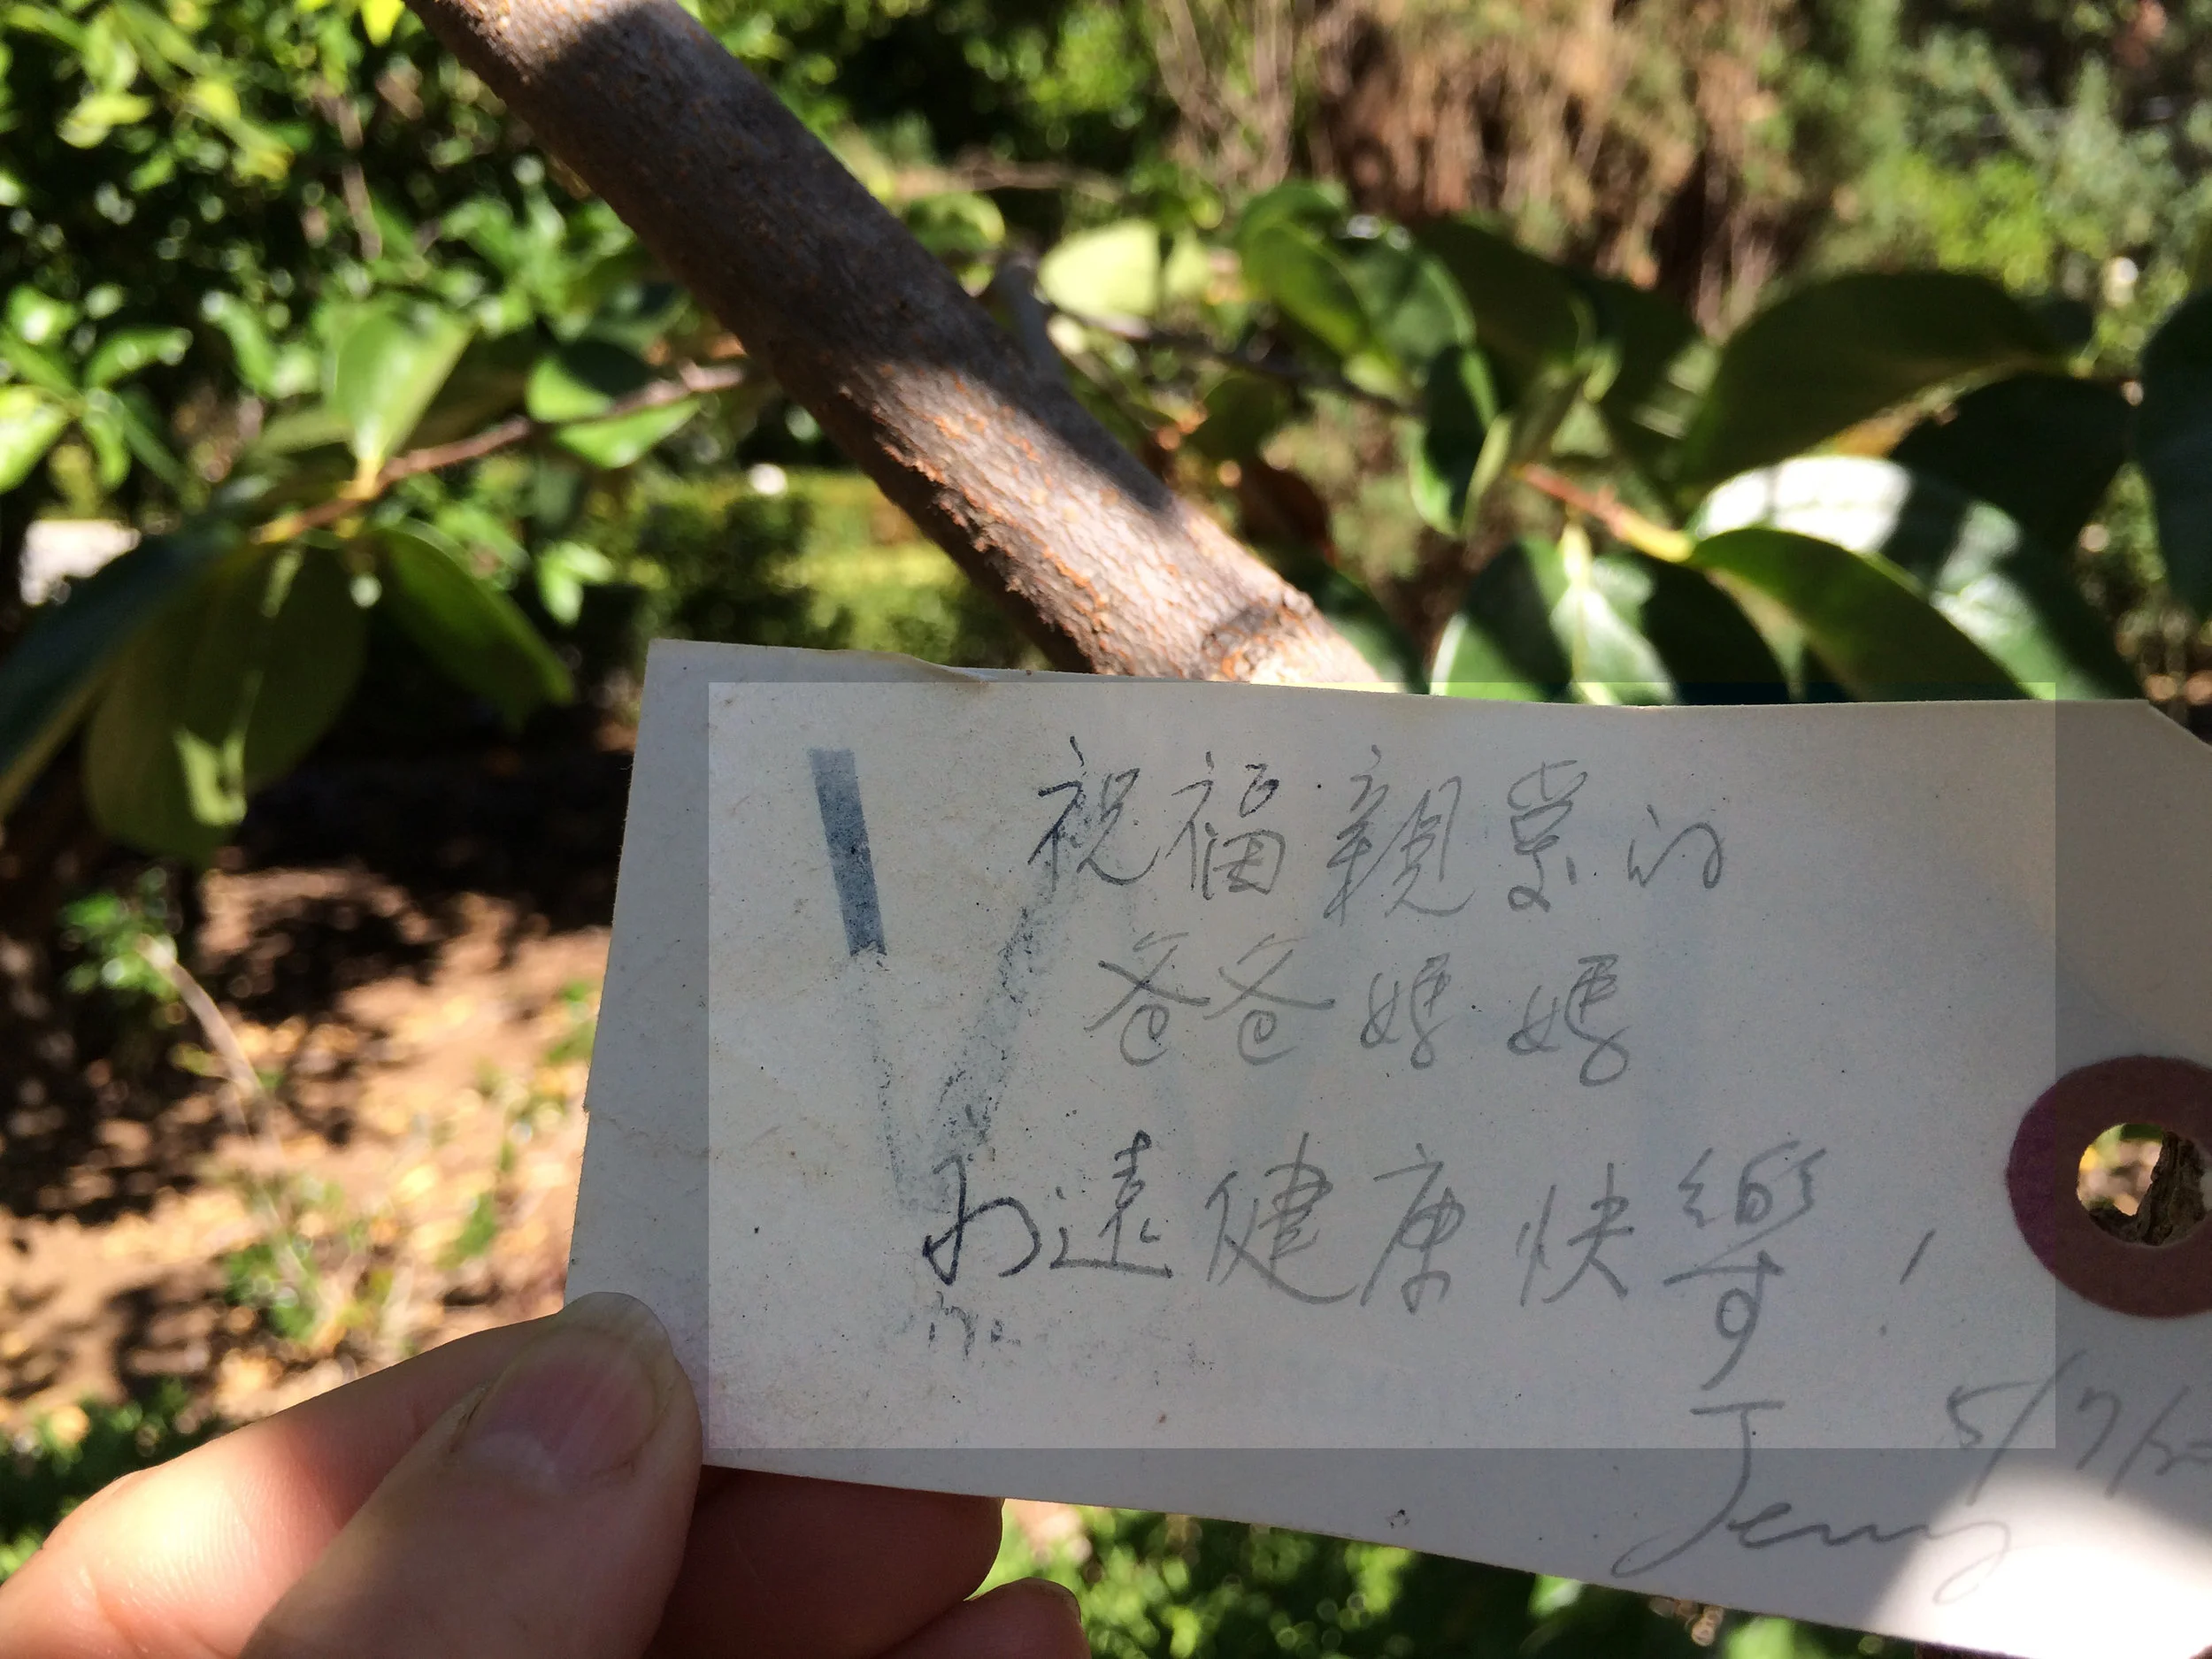 祝福親愛的
爸爸媽媽
永遠健康快樂！
5/7/
Jenny